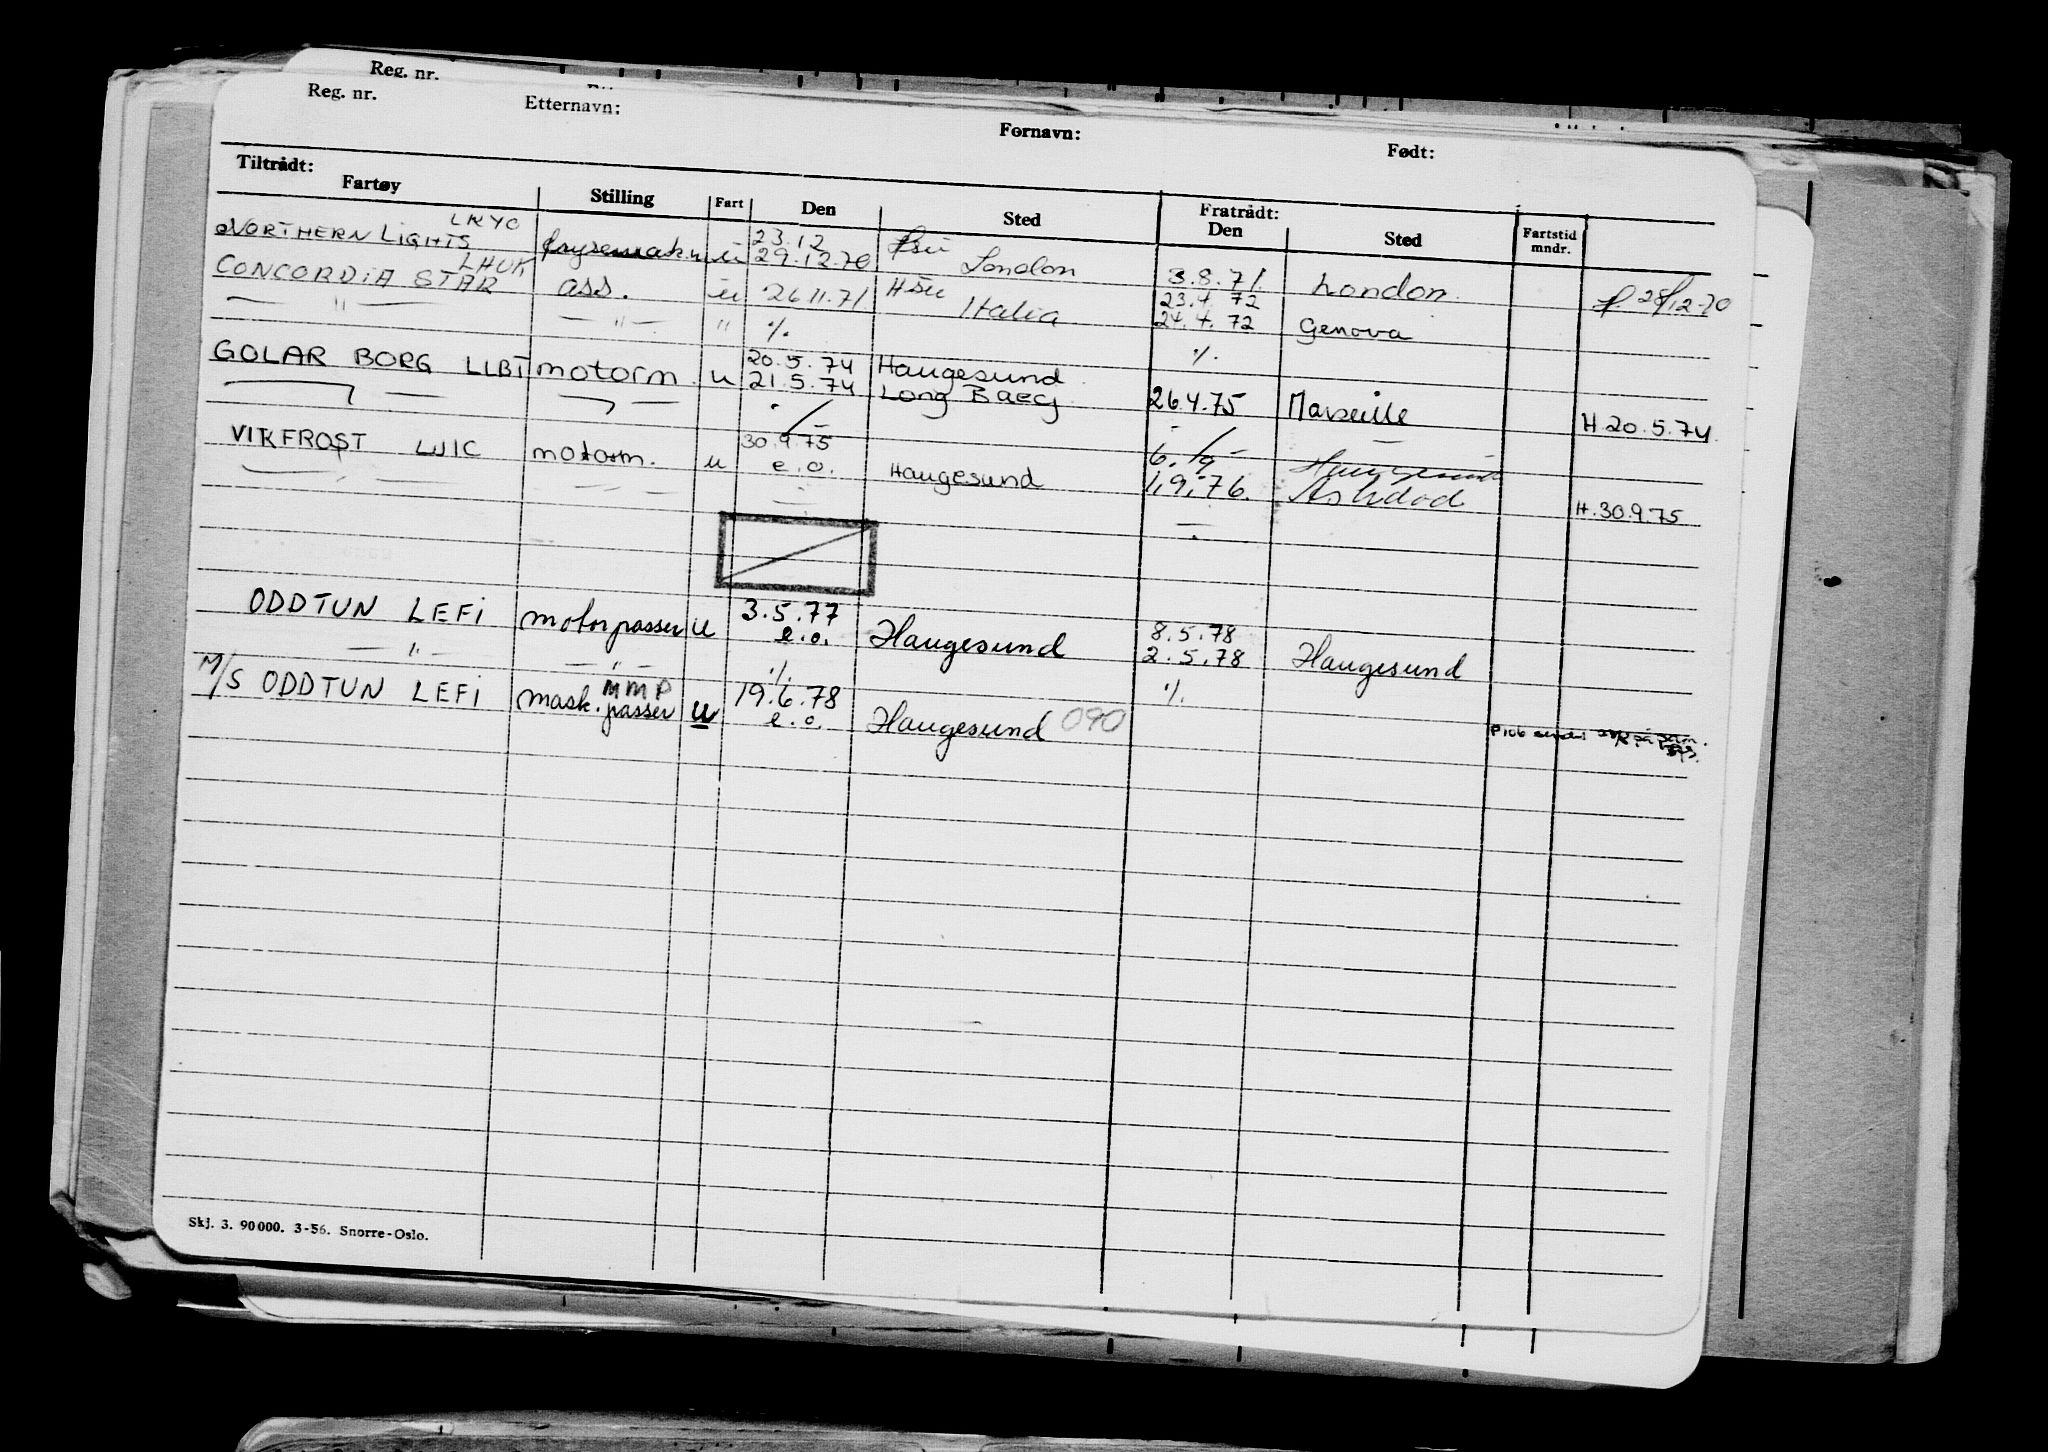 Reg. nr.
Reg. nr. Etternavn: Fornavn: Født:
Tiltrådt: Fratrådt:
Fartøy Stilling Fart Den Sted Den Sted Fartstid mndr.
LKYC 23.12
NORTHERN LIGHTS u 29.12.70 London 3.8.71 London 28/12-70
LHUK 23.4.72
CONCORDIA STAR ass. u 26.11.71 Hsu Italia 24.4.72 Genova
— " — — " — " ·/· ·/·
20.5.74 Haugesund
GOLAR BORG LLBT motorm. u 21.5.74 Long Baecj 26.4.75 Marseille H.20.5.74.
30.9.75
VIKFROST LJIC motorm. u e.o. Haugesund 1.9.76. Ashdod H.30.9.75
3.5.77 8.5.78
ODDTUN LEFI motorpasser u e.o. Haugesund 2.5.78 Haugesund
— " — — " — ·/· ·/·
MMP 19.6.78
M/S ODDTUN LEFI mask.passer u e.o. Haugesund 090
P106
Skj. 3. 90000. 3-56. Snorre-Oslo.